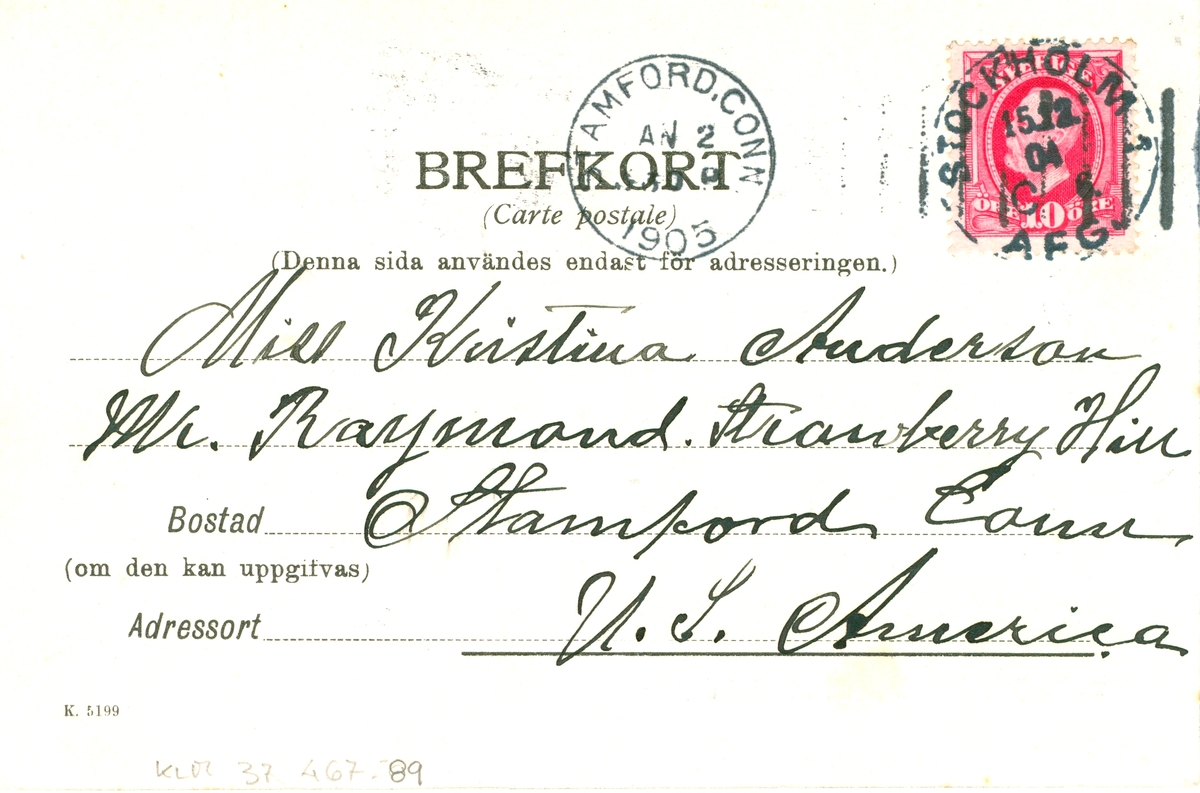 STAMFORD, CONN
AN 2
1905
STOCKHOLM 1
15.12.
04
AFG.
10
ÖRE ÖRE
BREFKORT
(Carte postale)
(Denna sida användes endast för adresseringen.)
Miss Kristina Anderson
Mr. Raymond. Strawberry Hill
Bostad Stamford Conn
(om den kan uppgifvas)
Adressort U. S. America.
K. 5199
KLM 37 467-89